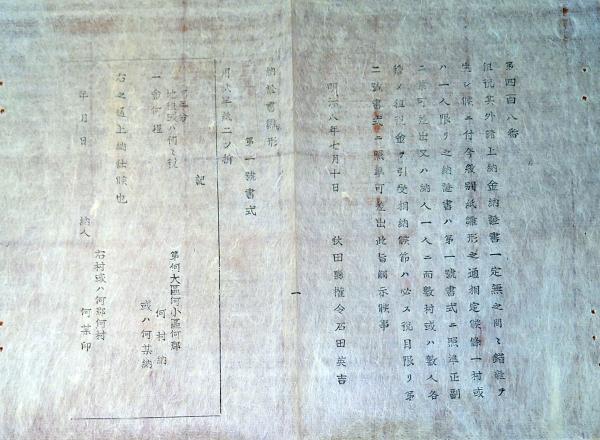 第四百八番
租税其外諸上納金納証書一定無之間々錯雑ヲ
生シ候ニ付今般別紙雛形之通相定候條一村或
ハ一人限リ之納証書ハ第一號書式ニ照準正副
二葉可差出又ハ納人一人ニ而数村或ハ数人各
種ノ租税金ヲ引受相納候節ハ必ス税目限リ第
二號書式ニ照準可差出此旨諭示候事
明治八年七月十日
秋田縣権令石田英吉
納証書雛形
第一號書式
一
記
地租或ハ何之税
一金何程
右之通上納仕候也
年月日
納人
第何大區何小區何郡
何村納
或ハ何某納
右村或ハ何郡何村
何某印